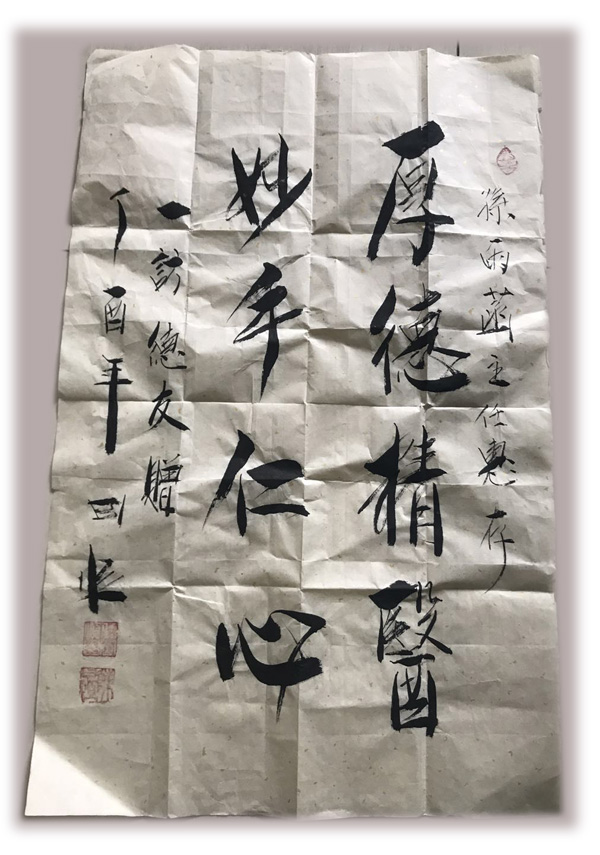 孫雨菡主任惠存
厚德精醫
妙手仁心
一訪德友贈
丁酉年